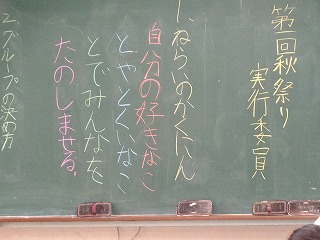 第一回秋祭り
実行委員
1、ねらいのかくにん
自分の好きなこ
とやとくいなこ
とでみんなを
たのしませる。
2、グループの決め方